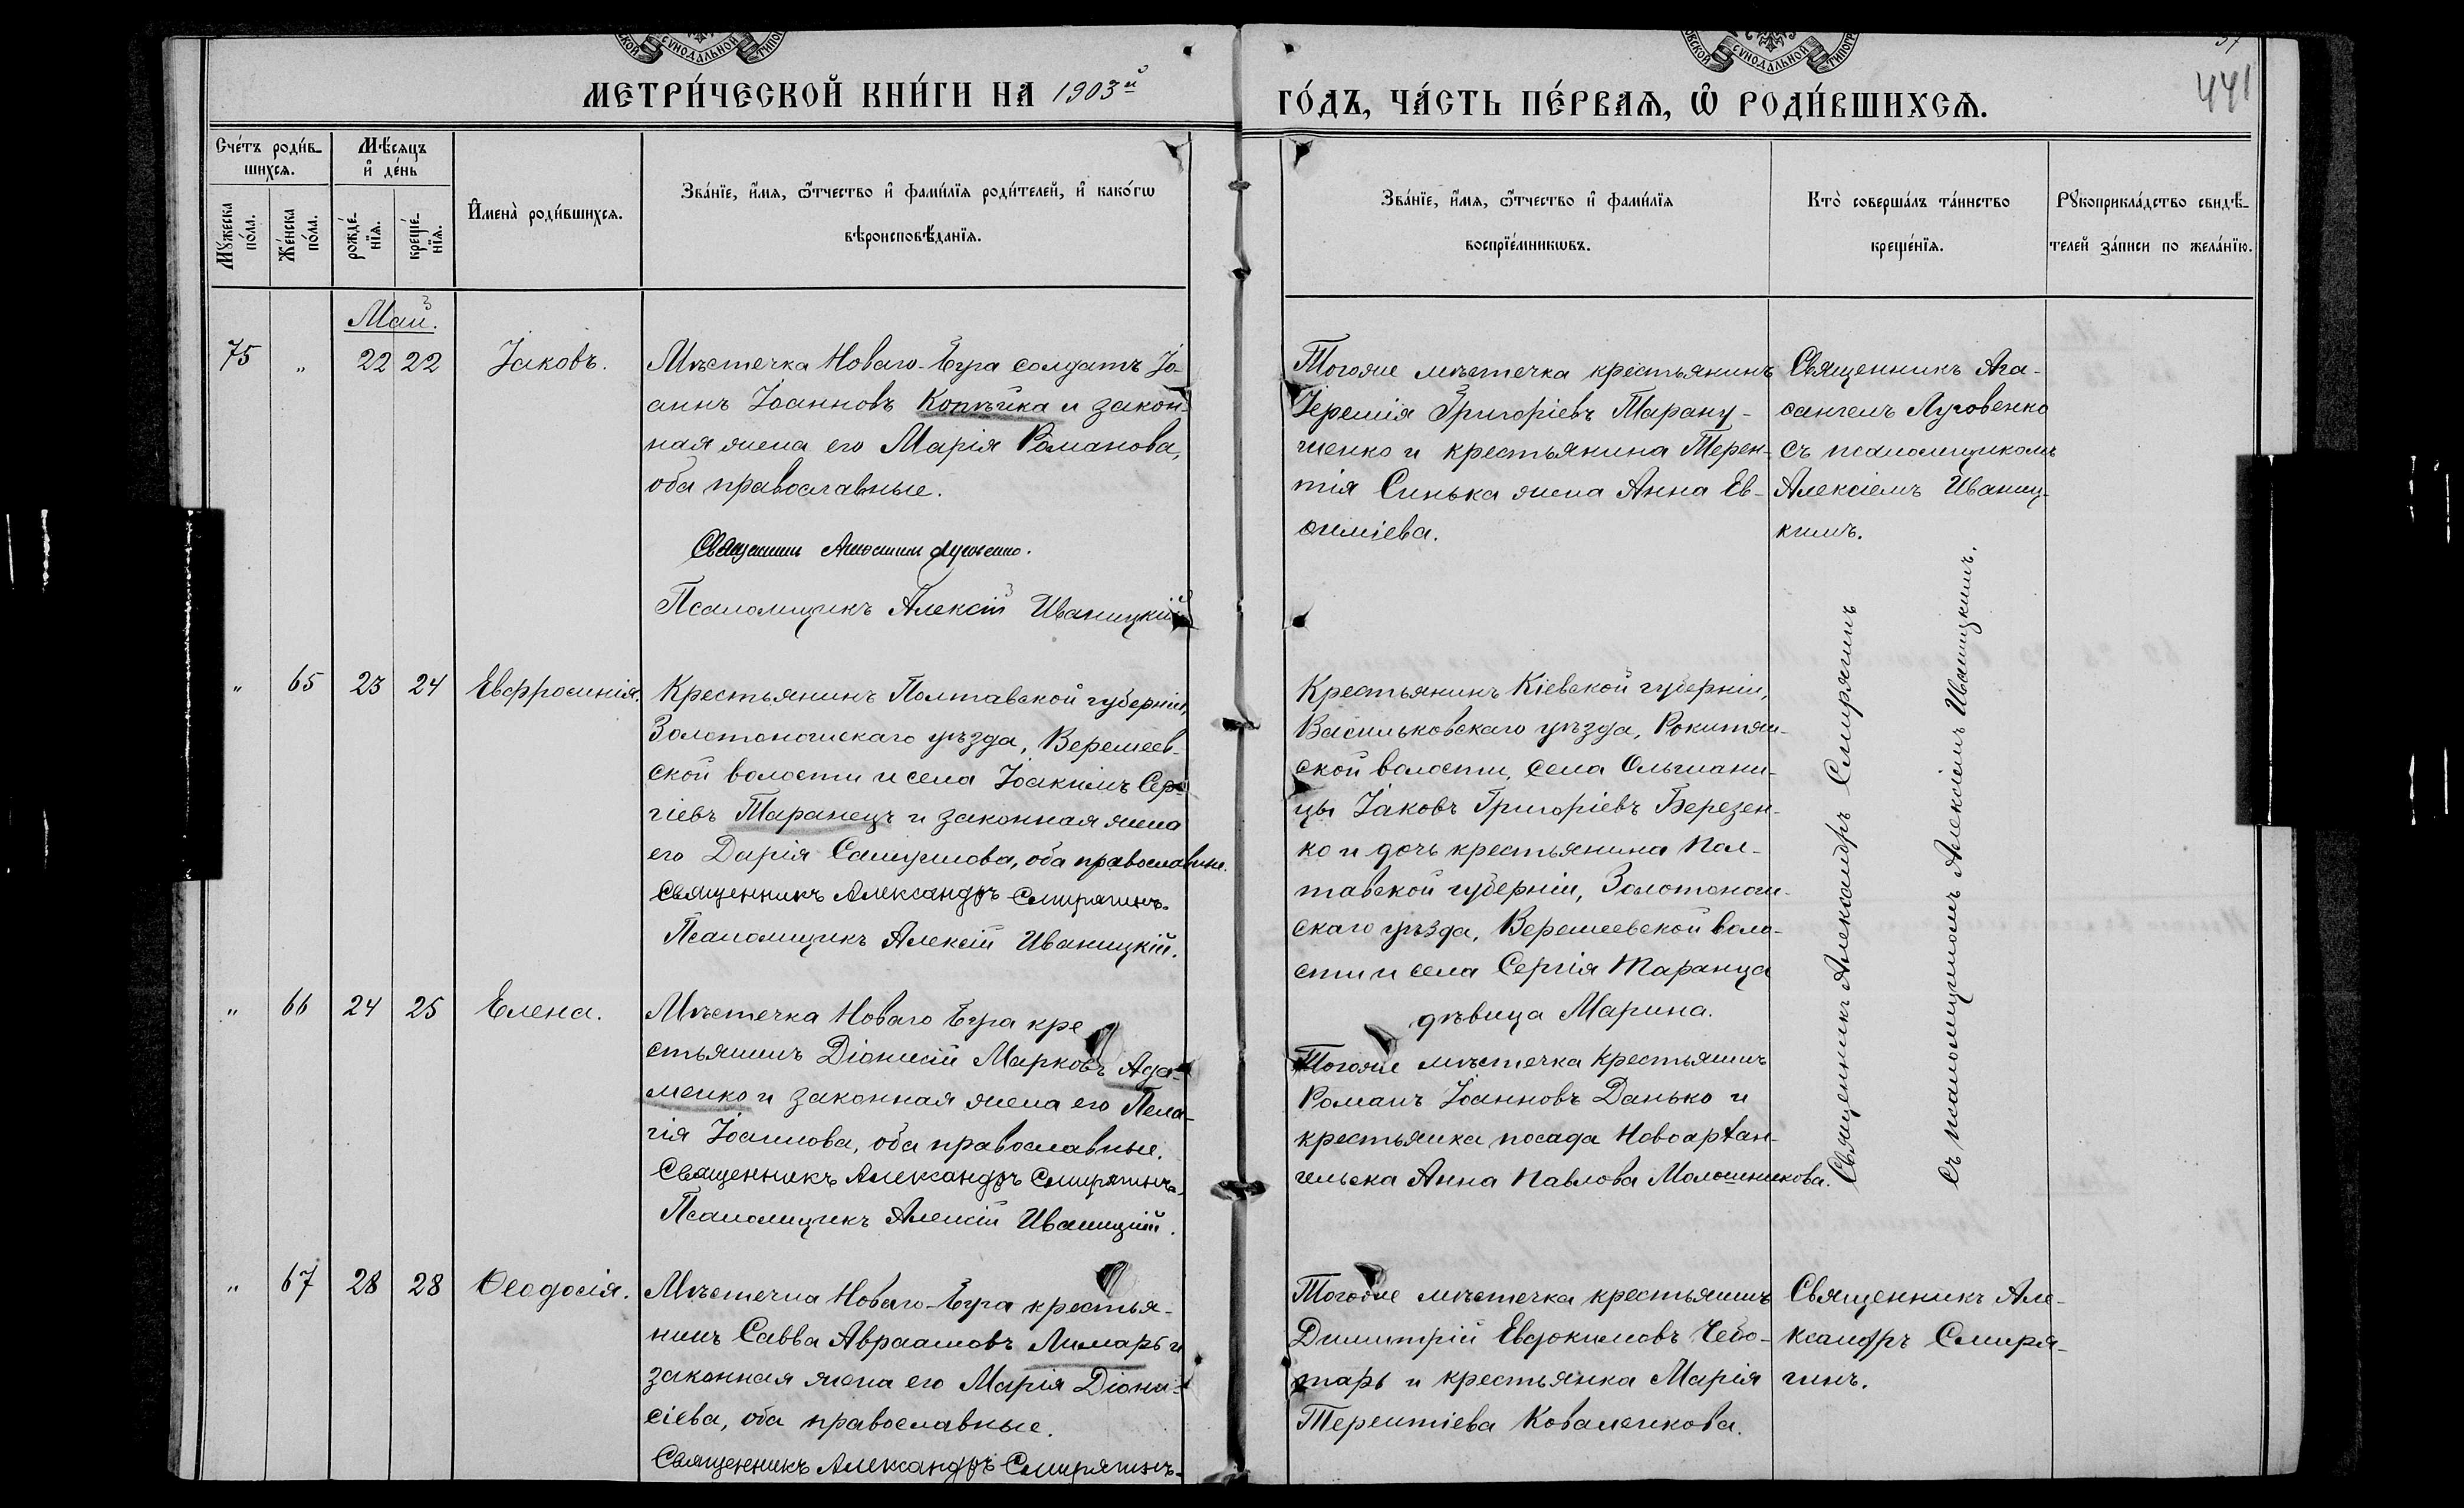 СѴНОДАЛЬНОЙ
СѴНОДАЛЬНОЙ
МЕТРИ́ЧЕСКОЙ КНИ́ГИ НА 1903й
ГО́ДЪ, ЧА́СТЬ ПЕ́РВАЯ, Ѡ҆ РОДИ́ВШИХСѦ.
441
Сче́тъ роди́в-
шихсѧ.
Мѣ́сяцъ
и҆ де́нь
И҆мена̀ роди́вшихсѧ.
Зва́нїе, и҆́мѧ, ѻ҆́тчество и҆ фами́лїѧ роди́телей, и҆ како́гѡ
вѣроисповѣ́данїѧ.
Мꙋ́жеска
по́ла.
Же́нска
по́ла.
рожде́-
нїѧ.
креще́-
нїѧ.
Зва́нїе, и҆́мѧ, ѻ҆́тчество и҆ фами́лїѧ
воспрїе́мникѡвъ.
Кто̀ соверша́лъ та́инство
креще́нїѧ.
Рꙋкоприкла́дство свидѣ́-
телей за́писи по жела́нїю.
Май.
75 " 22 22 Іаковъ.
Мѣстечка Новаго-Буга солдатъ Іо-
аннъ Іоанновъ Копѣйка и закон-
ная жена его Марія Романова,
оба православные.
Псаломщикъ Алексій Иваницкій
Тогоже мѣстечка крестьянинъ
Іеремія Григоріевъ Тарану-
щенко и крестьянина Терен-
тія Синька жена Анна Ев-
ѳиміева.
Священникъ Ага-
ѳангелъ Луговенко
съ псаломщикомъ
Алексіемъ Иваниц-
кимъ.
" 65 23 24 Евфросинія.
Крестьянинъ Полтавской губерніи,
Золотоношскаго уѣзда, Веремеев-
ской волости и села Іоакимъ Сер-
гіевъ Таранецъ и законная жена
его Дарія Самуилова, оба православные.
Священникъ Александръ Смирягинъ.
Псаломщикъ Алексій Иваницкій.
Крестьянинъ Кіевской губерніи,
Васильковскаго уѣзда, Рокитян-
ской волости, села Ольшани-
цы Іаковъ Григоріевъ Березен-
ко и дочь крестьянина Пол-
тавской губерніи, Золотонош-
скаго уѣзда, Веремеевской воло-
сти и села Сергія Таранца
дѣвица Марина.
Священникъ Александръ Смирягинъ
съ псаломщикомъ Алексіемъ Иваницкимъ.
" 66 24 25 Елена.
Мѣстечка Новаго Буга кре
стьянинъ Діонисій Марковъ Ада-
менко и законная жена его Пела-
гія Іоаннова, оба православные.
Священникъ Александръ Смирягинъ.
Псаломщикъ Алексій Иваницкій.
Тогоже мѣстечка крестьянинъ
Романъ Іоанновъ Данько и
крестьянка посада Новоархан-
гельска Анна Павлова Молошникова.
" 67 28 28 Ѳеодосія.
Мѣстечка Новаго-Буга крестья-
нинъ Савва Авраамовъ Лимарь и
законная жена его Марія Діони-
сіева, оба православные.
Священникъ Александръ Смирягинъ.
Тогоже мѣстечка крестьянинъ
Димитрій Евдокимовъ Чебо-
тарь и крестьянка Марія
Терентіева Коваленкова.
Священникъ Але-
ксандръ Смиря-
гинъ.